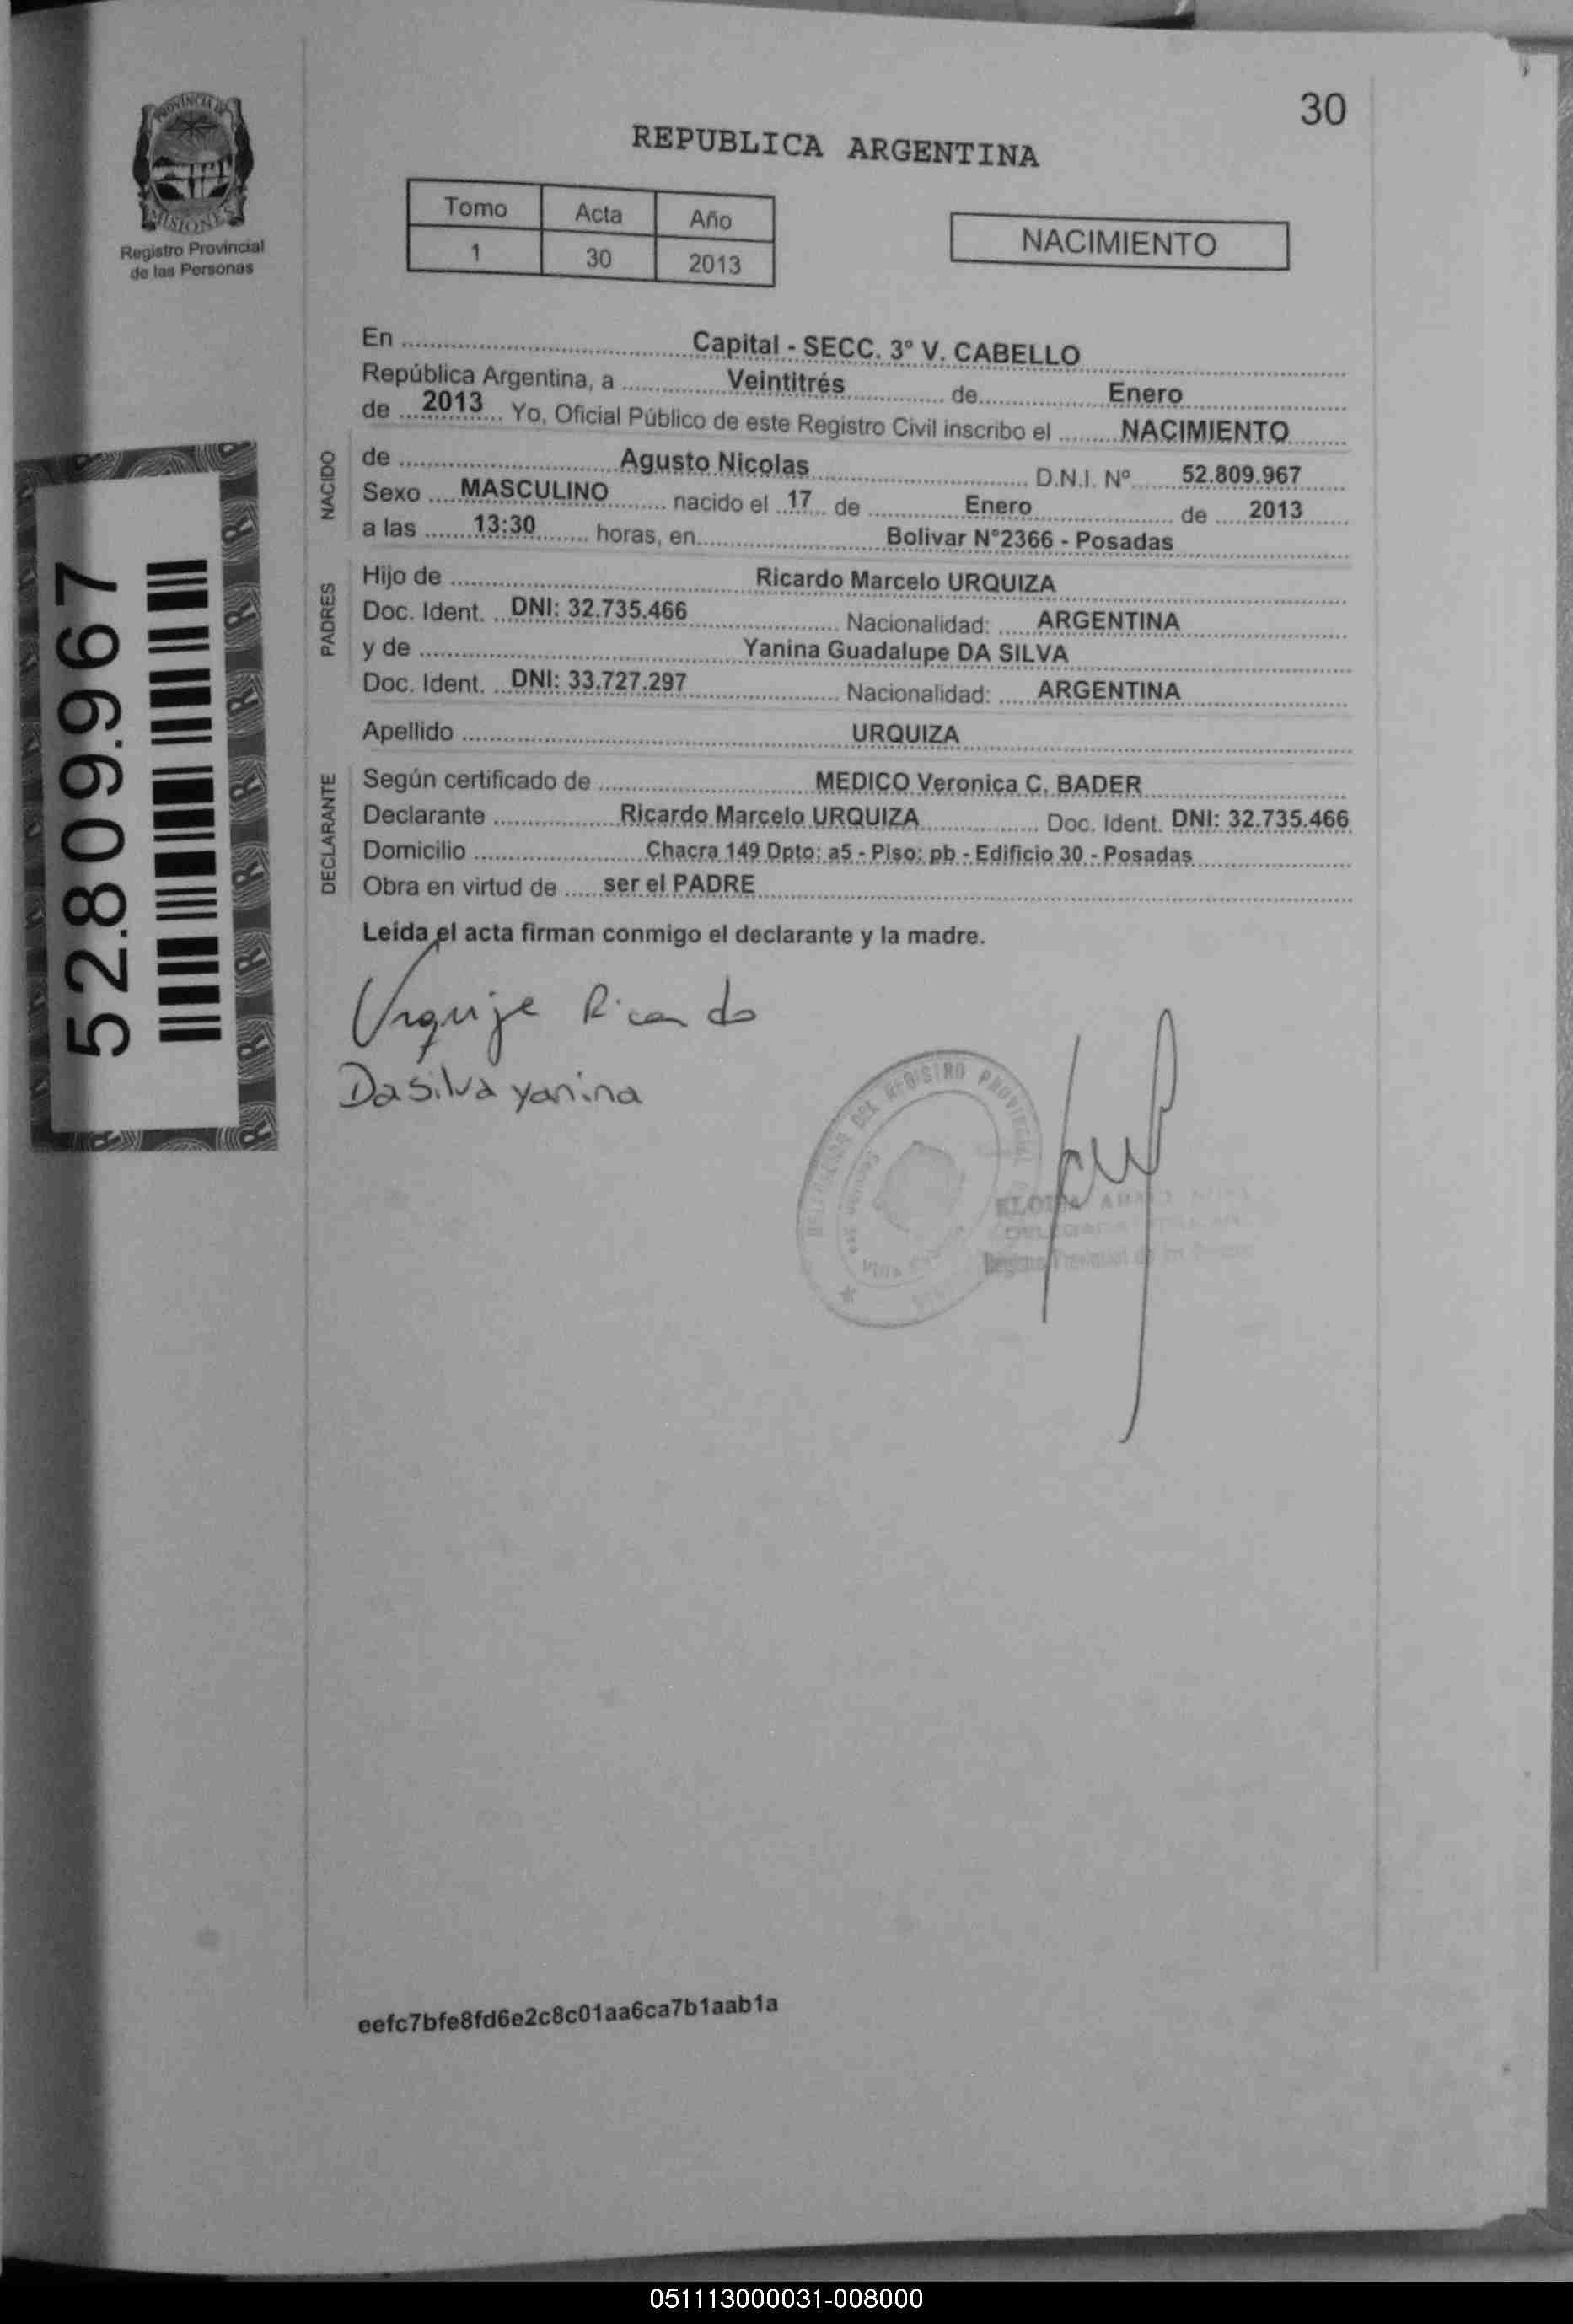 30
REPUBLICA ARGENTINA
PROVINCIA DE
MISIONES
Registro Provincial
de las Personas
Tomo Acta Año
1 30 2013
NACIMIENTO
En Capital - SECC. 3° V. CABELLO
República Argentina, a Veintitrés de Enero
de 2013 Yo, Oficial Público de este Registro Civil inscribo el NACIMIENTO
NACIDO
de Agusto Nicolas D.N.I. Nº 52.809.967
Sexo MASCULINO nacido el 17 de Enero de 2013
a las 13:30 horas, en Bolivar N°2366 - Posadas
PADRES
Hijo de Ricardo Marcelo URQUIZA
Doc. Ident. DNI: 32.735.466 Nacionalidad: ARGENTINA
y de Yanina Guadalupe DA SILVA
Doc. Ident. DNI: 33.727.297 Nacionalidad: ARGENTINA
Apellido URQUIZA
DECLARANTE
Según certificado de MEDICO Veronica C. BADER
Declarante Ricardo Marcelo URQUIZA Doc. Ident. DNI: 32.735.466
Domicilio Chacra 149 Dpto: a5 - Piso: pb - Edificio 30 - Posadas
Obra en virtud de ser el PADRE
Leída el acta firman conmigo el declarante y la madre.
52.809.967
Urquize Ricardo
Dasilva yanina
DEL REGISTRO PROVINCIAL
Registro Provincial de las
eefc7bfe8fd6e2c8c01aa6ca7b1aab1a
051113000031-008000